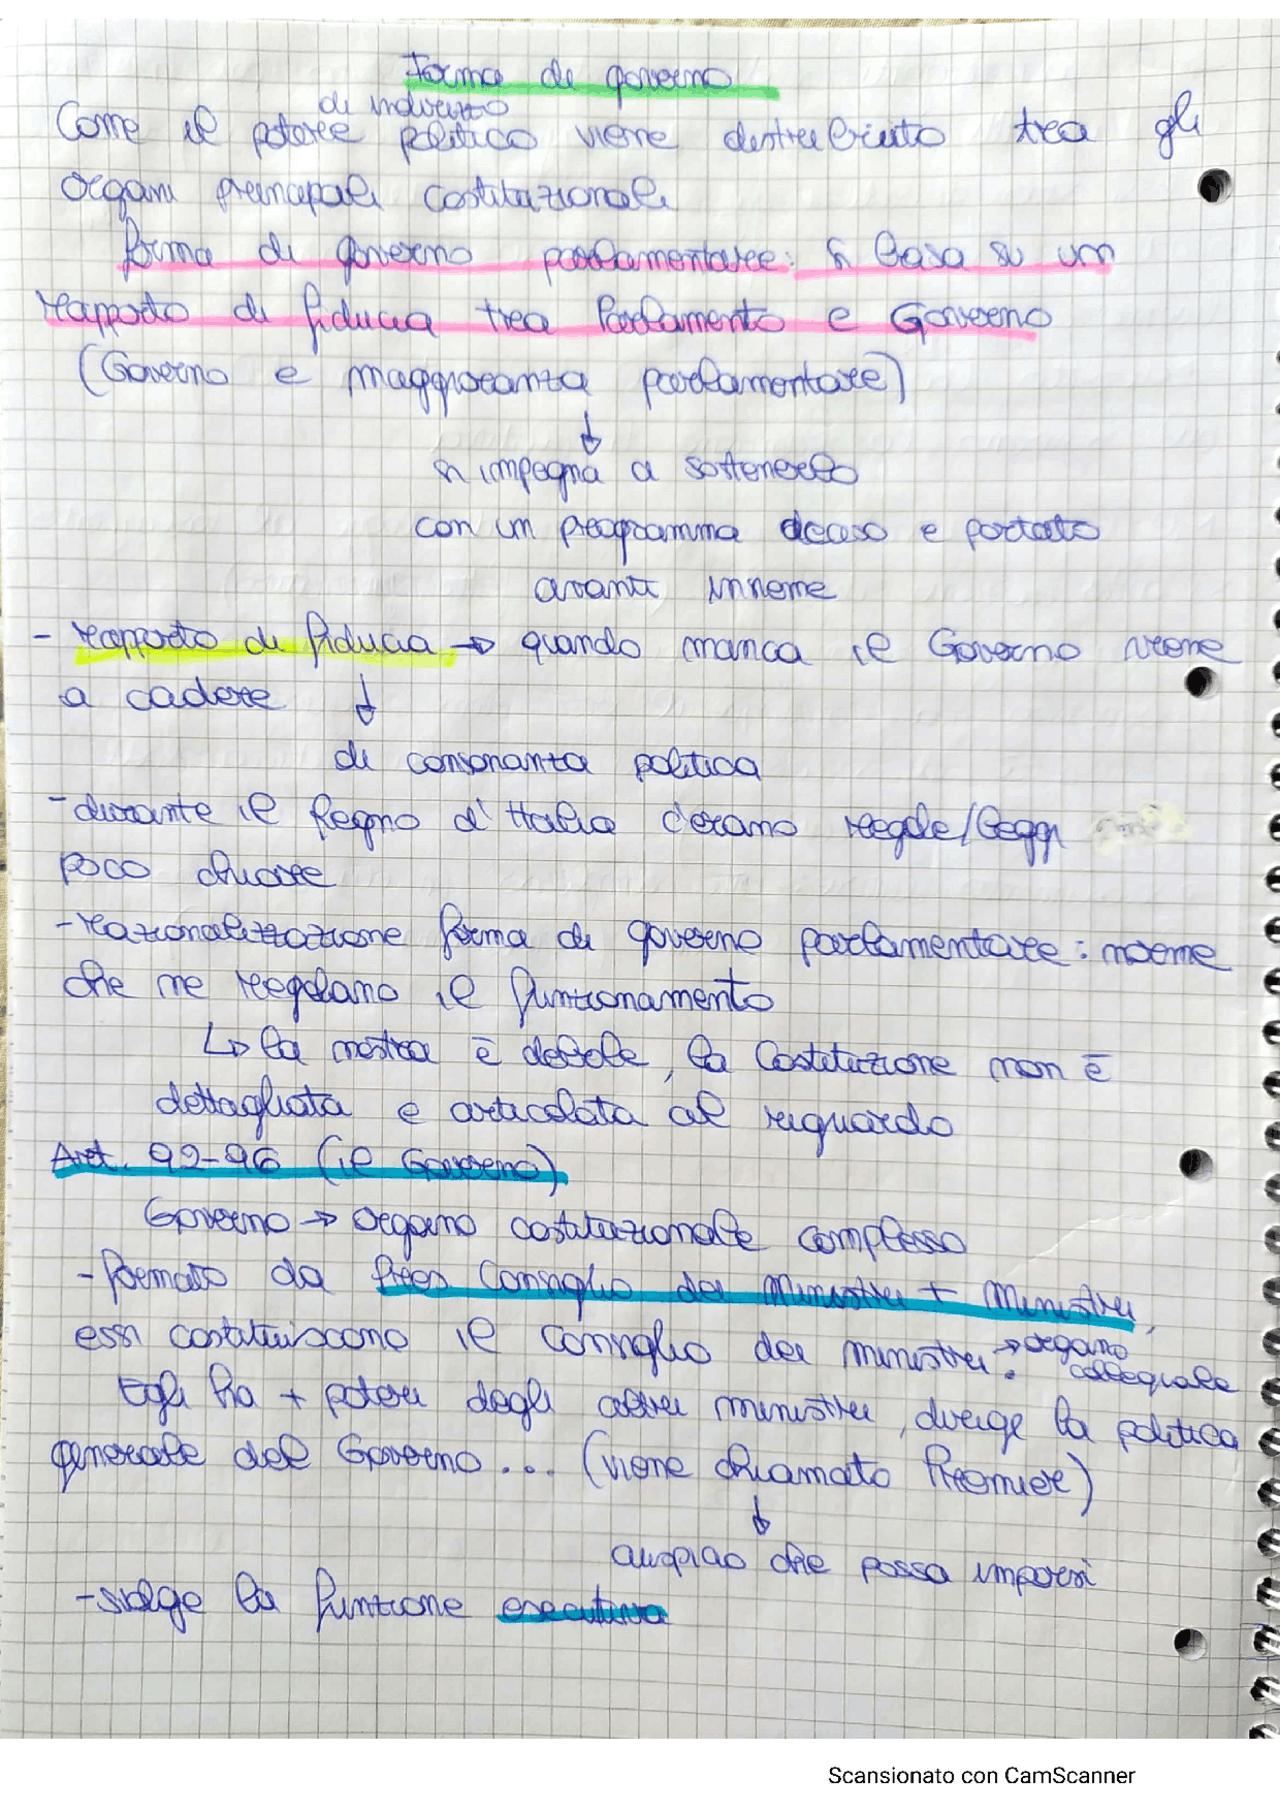 Forma di governo
di indirizzo
Come il potere politico viene distribuito tra gli
organi principali costituzionali
forma di governo parlamentare: si basa su un
rapporto di fiducia tra Parlamento e Governo
(Governo e maggioranza parlamentare)
↓
si impegna a sostenerlo
con un programma deciso e portato
avanti insieme
- rapporto di fiducia → quando manca il Governo viene
a cadere ↓
di consonanza politica
- durante il Regno d'Italia c'erano regole/leggi
poco chiare
- razionalizzazione forma di governo parlamentare: norme
che ne regolano il funzionamento
↳ la nostra è debole, la Costituzione non è
dettagliata e articolata al riguardo
Art. 92-96 (il Governo)
Governo → organo costituzionale complesso
- formato da Pres Consiglio dei Ministri + Ministri,
essi costituiscono il consiglio dei ministri. → organo
collegiale
Egli ha + poteri degli altri ministri, dirige la politica
generale del Governo... (viene chiamato Premier)
↓
auspicio che possa imporsi
- svolge la funzione esecutiva
Scansionato con CamScanner